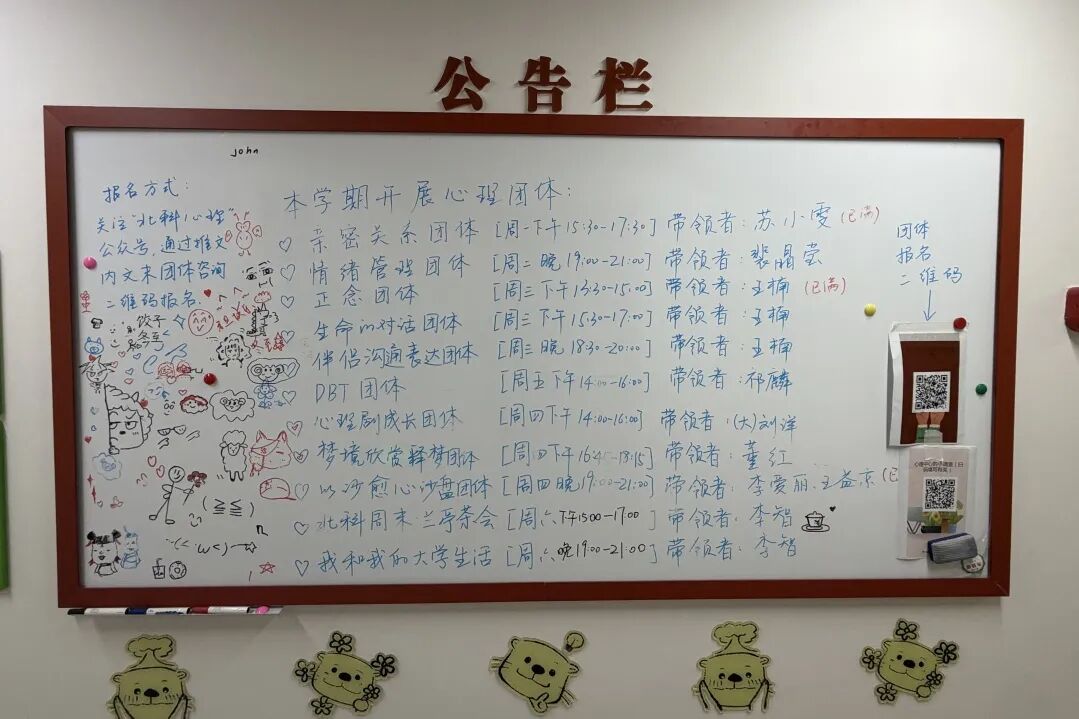 公告栏
john
报名方式：
关注“北科心理”
公众号，通过推文
内文末团体咨询
二维码报名.
本学期开展心理团体：
亲密关系团体 [周一下午15:30-17:30] 带领者：苏小雯 (已满)
情绪管理团体 [周二晚19:00-21:00] 带领者：裴晶莹
正念团体 [周三下午13:30-15:00] 带领者：王楠 (已满)
生命的对话团体 [周三下午15:30-17:00] 带领者：王楠
伴侣沟通表达团体 [周三晚18:30-20:00] 带领者：王楠
DBT团体 [周五下午14:00-16:00] 带领者：祁麟
心理剧成长团体 [周四下午14:00-16:00] 带领者：(大)刘洋
梦境欣赏释梦团体 [周四下午16:45-18:15] 带领者：董红
以沙愈心沙盘团体 [周四晚19:00-21:00] 带领者：李爱丽、王益京 (已
北科周末·兰亭茶会 [周六下午15:00-17:00] 带领者：李智
我和我的大学生活 [周六晚19:00-21:00] 带领者：李智
团体
报名
二维码
饺子